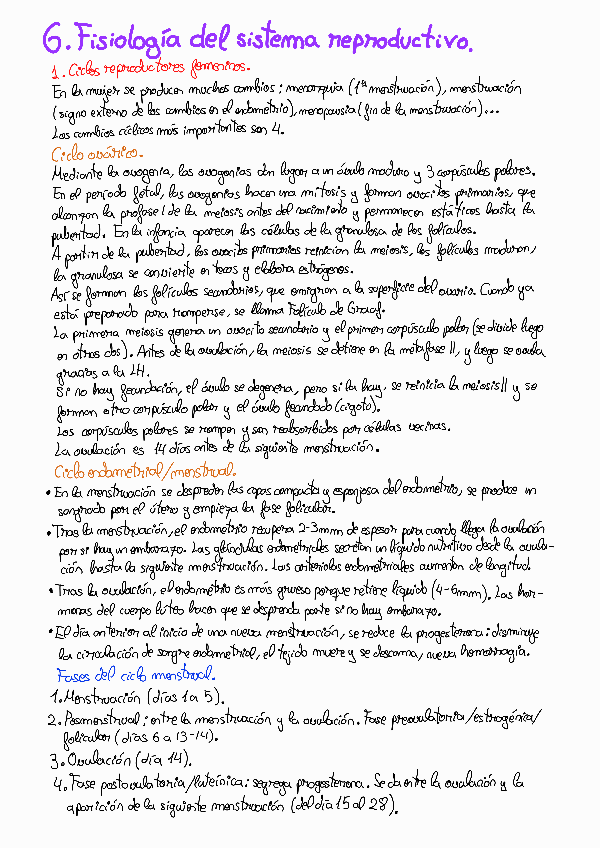 6. Fisiología del sistema reproductivo.
1. Ciclos reproductores femeninos.
En la mujer se producen muchos cambios: menarquia (1ª menstruación), menstruación
(signo externo de los cambios en el endometrio), menopausia (fin de la menstruación)...
Los cambios cíclicos más importantes son 4.
Ciclo ovárico.
Mediante la ovogenia, las ovogonias dan lugar a un óvulo maduro y 3 corpúsculos polares.
En el período fetal, las ovogonias hacen una mitosis y forman ovocitos primarios, que
alcanzan la profase I de la meiosis antes del nacimiento y permanecen estáticos hasta la
pubertad. En la infancia aparecen las células de la granulosa de los folículos.
A partir de la pubertad, los ovocitos primarios reinician la meiosis, los folículos maduran,
la granulosa se convierte en tecas y elabora estrógenos.
Así se forman los folículos secundarios, que emigran a la superficie del ovario. Cuando ya
está preparado para romperse, se llama Folículo de Graaf.
La primera meiosis genera un ovocito secundario y el primer corpúsculo polar (se divide luego
en otros dos). Antes de la ovulación, la meiosis se detiene en la metafase II, y luego se ovula
gracias a la LH.
Si no hay fecundación, el óvulo se degenera, pero si la hay, se reinicia la meiosis II y se
forman otro corpúsculo polar y el óvulo fecundado (cigoto).
Los corpúsculos polares se rompen y son reabsorbidos por células vecinas.
La ovulación es 14 días antes de la siguiente menstruación.
Ciclo endometrial/menstrual.
• En la menstruación se desprenden las capas compacta y esponjosa del endometrio, se produce un
sangrado por el útero y empieza la fase folicular.
• Tras la menstruación, el endometrio recupera 2-3mm de espesor para cuando llega la ovulación
por si hay un embarazo. Las glándulas endometriales secretan un líquido nutritivo desde la ovula-
ción hasta la siguiente menstruación. Las arteriolas endometriales aumentan de longitud.
• Tras la ovulación, el endometrio es más grueso porque retiene líquido (4-6mm). Las hor-
monas del cuerpo lúteo hacen que se desprenda parte si no hay embarazo.
• El día anterior al inicio de una nueva menstruación, se reduce la progesterona: disminuye
la circulación de sangre endometrial, el tejido muere y se descama, nueva hemorragia.
Fases del ciclo menstrual.
1. Menstruación (días 1 a 5).
2. Posmenstrual: entre la menstruación y la ovulación. Fase preovulatoria/estrogénia/
folicular (días 6 a 13-14).
3. Ovulación (día 14).
4. Fase postovulatoria/luteínica: segrega progesterona. Se da entre la ovulación y la
aparición de la siguiente menstruación (del día 15 al 28).